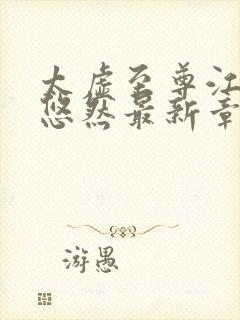 太虚至尊江
悠然最新章
游愚